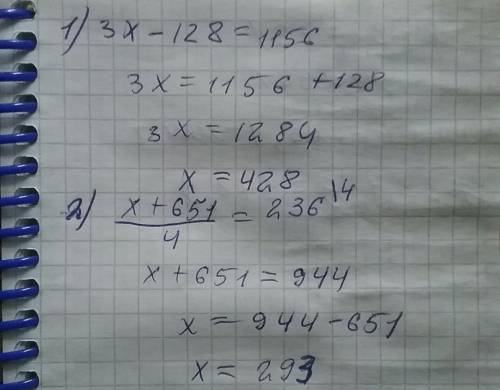 1) 3x - 128 = 1156
3x = 1156 + 128
3x = 1284
x = 428
2) (x + 651)/4 = 236 \4
x + 651 = 944
x = 944 - 651
x = 293